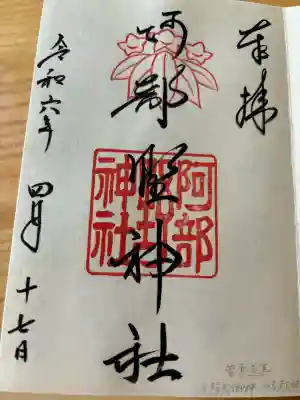 奉拝
阿部野神社
阿部野神社
令和六年 四月 十七日